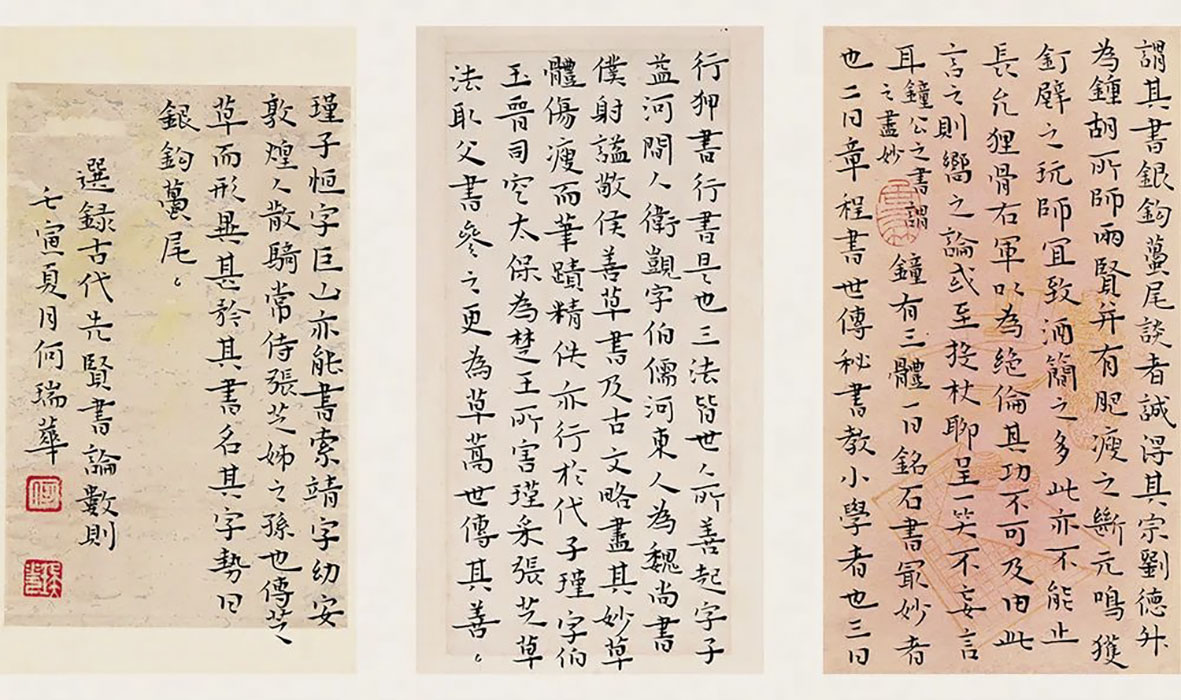 謂其書銀鉤蠆尾談者誠得其宗劉德升
為鍾胡所師兩賢并有肥瘦之斷元鳴獲
釘壁之玩師宜致酒簡之多此亦不能止
長允狸骨右軍以為絕倫其功不可及由此
言之則嚮之論或至投杖聊呈一笑不妄言
耳鐘公之書謂
之盡妙
鐘有三體一曰銘石書冣妙者
也二曰章程書世傳秘書教小學者也三曰
行狎書行書是也三法皆世人所善起字子
益河間人衛覬字伯儒河東人為魏尚書
僕射謚敬侯善草書及古文略盡其妙草
體傷瘦而筆蹟精佚亦行於代子瓘字伯
玉晉司空太保為楚王所害瓘采張芝草
法取父書參之更為草藁世傳其善。
瓘子恒字巨山亦能書索靖字幼安
敦煌人散騎常侍張芝姊之孫也傳芝
草而形異甚矜其書名其字勢曰
銀鉤蠆尾。
選録古代先賢書論數則
壬寅夏月何瑞華